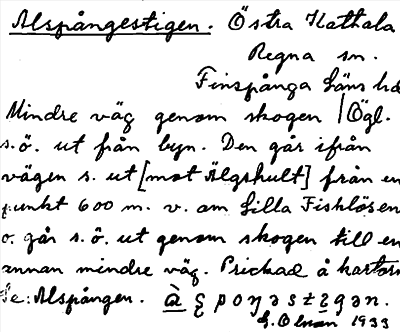 Alspångestigen. Östra Kathala
Regna sn.
Finspånga Läns hd
Mindre väg genom skogen Ögl.
s.ö. ut från byn. Den går ifrån
vägen s. ut [mot Älgshult] från en
punkt 600 m. v. om Lilla Fisklösen
o. går s.ö. ut genom skogen till en
annan mindre väg. Prickad å kartan
Se: Alspången.
G. Olnån 1933